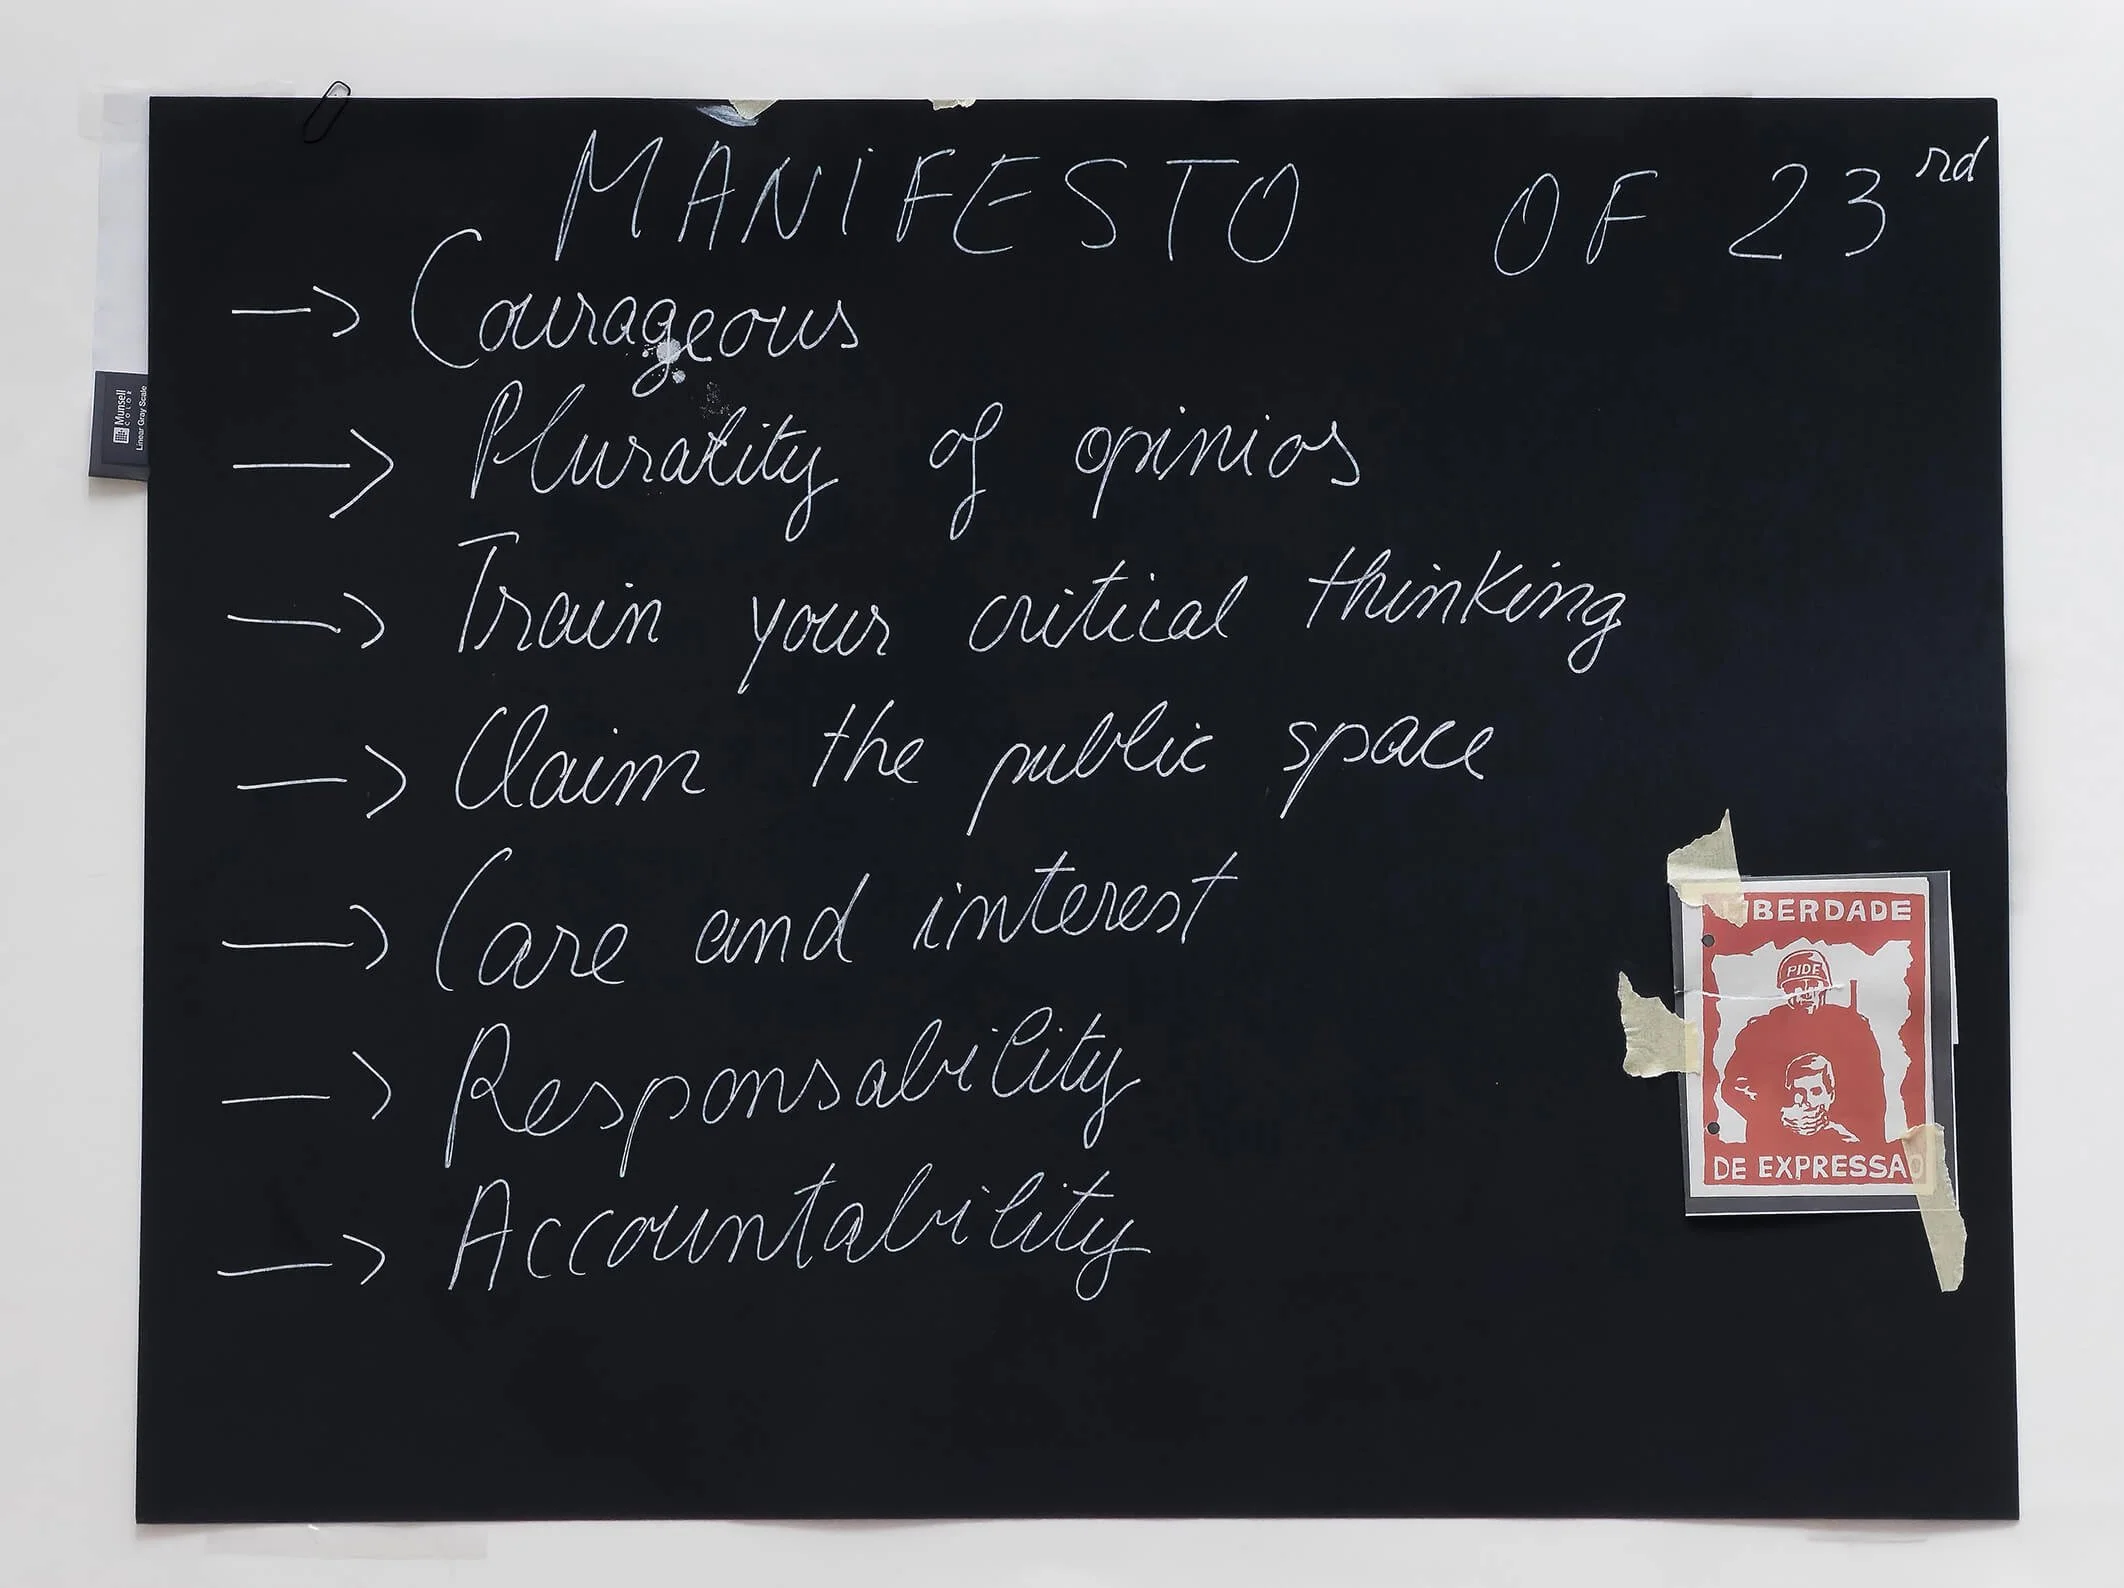 MANIFESTO OF 23rd
→ Courageous
→ Plurality of opinios
→ Train your critical thinking
→ Claim the public space
→ Care and interest
→ Responsability
→ Accountability
LIBERDADE
PIDE
DE EXPRESSAO
Munsell
COLOR
Linear Gray Scale